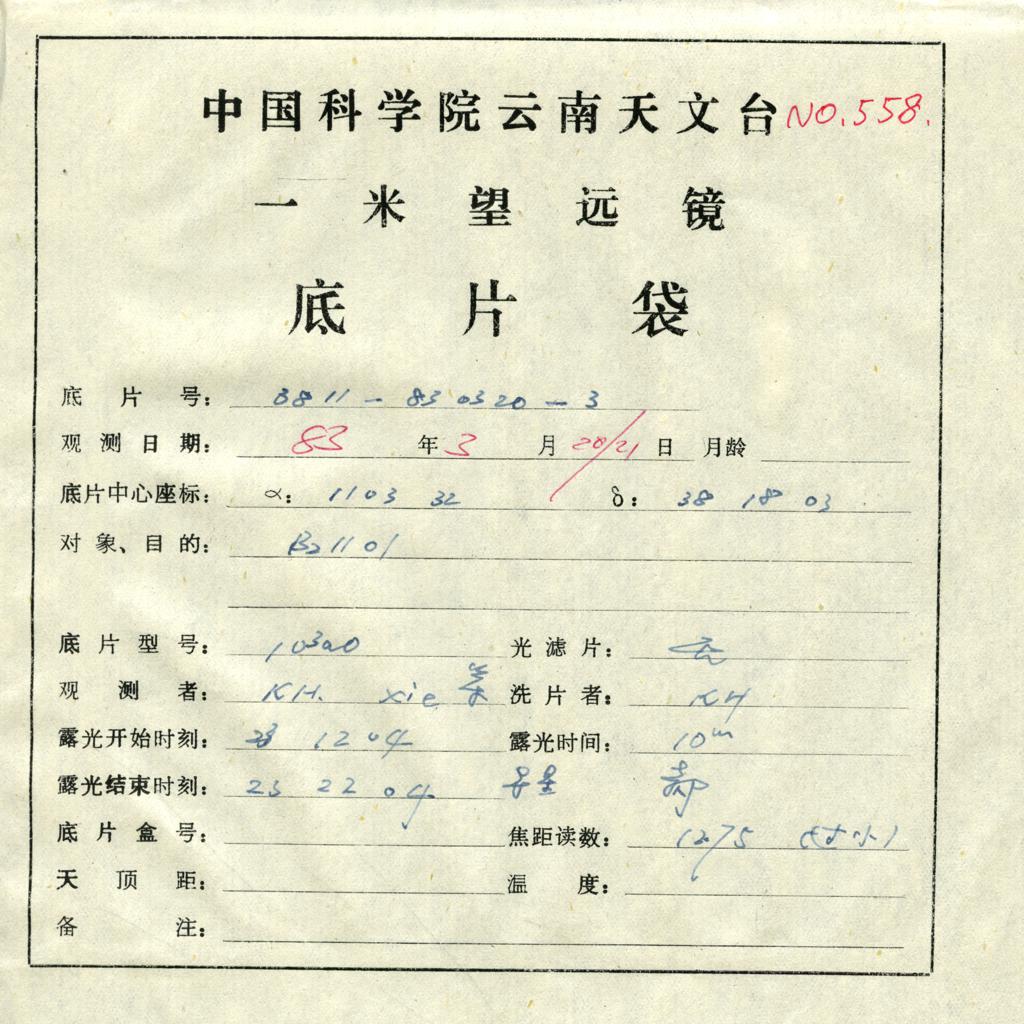 中国科学院云南天文台 NO.558.
一米望远镜
底片袋
底片号: 3811-830320-3
观测日期: 83 年 3 月 20/21 日 月龄
底片中心座标: α: 1103 32 δ: 38 18 03
对象、目的: B21101
底片型号: 103aO 光滤片: 无
观测者: KH. xie 洗片者: KH
露光开始时刻: 23 12 04 露光时间: 10m
露光结束时刻: 23 22 04 导星
底片盒号: 焦距读数: 1275
天顶距: 温度:
备注: